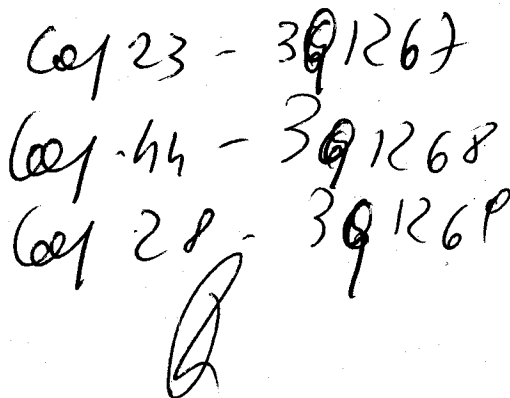 Coy 23 - 391267
Coy. 44 - 391268
Coy 28 - 391269